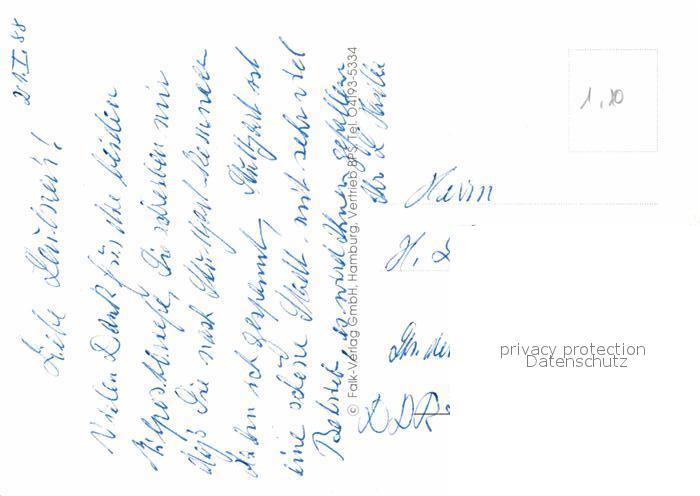 21.I.88
Liebe
Vielen Dank für die beiden
Sie schreiben mir
daß Sie nach Stuttgart kommen
Stuttgart ist
eine schöne Stadt mit sehr viel
Betrieb, es wird Ihnen gefallen
Ihr
© Falk-Verlag GmbH, Hamburg, Vertrieb BPS, Tel. 04193-5334
1,10
Herrn
H.
DDR
privacy protection
Datenschutz